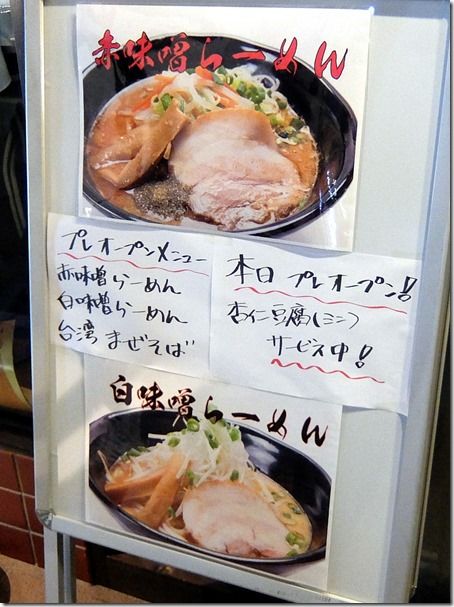 赤味噌らーめん
プレオープンメニュー
赤味噌らーめん
白味噌らーめん
台湾まぜそば
本日プレオープン!!
杏仁豆腐(ミニ)
サービス中!
白味噌らーめん